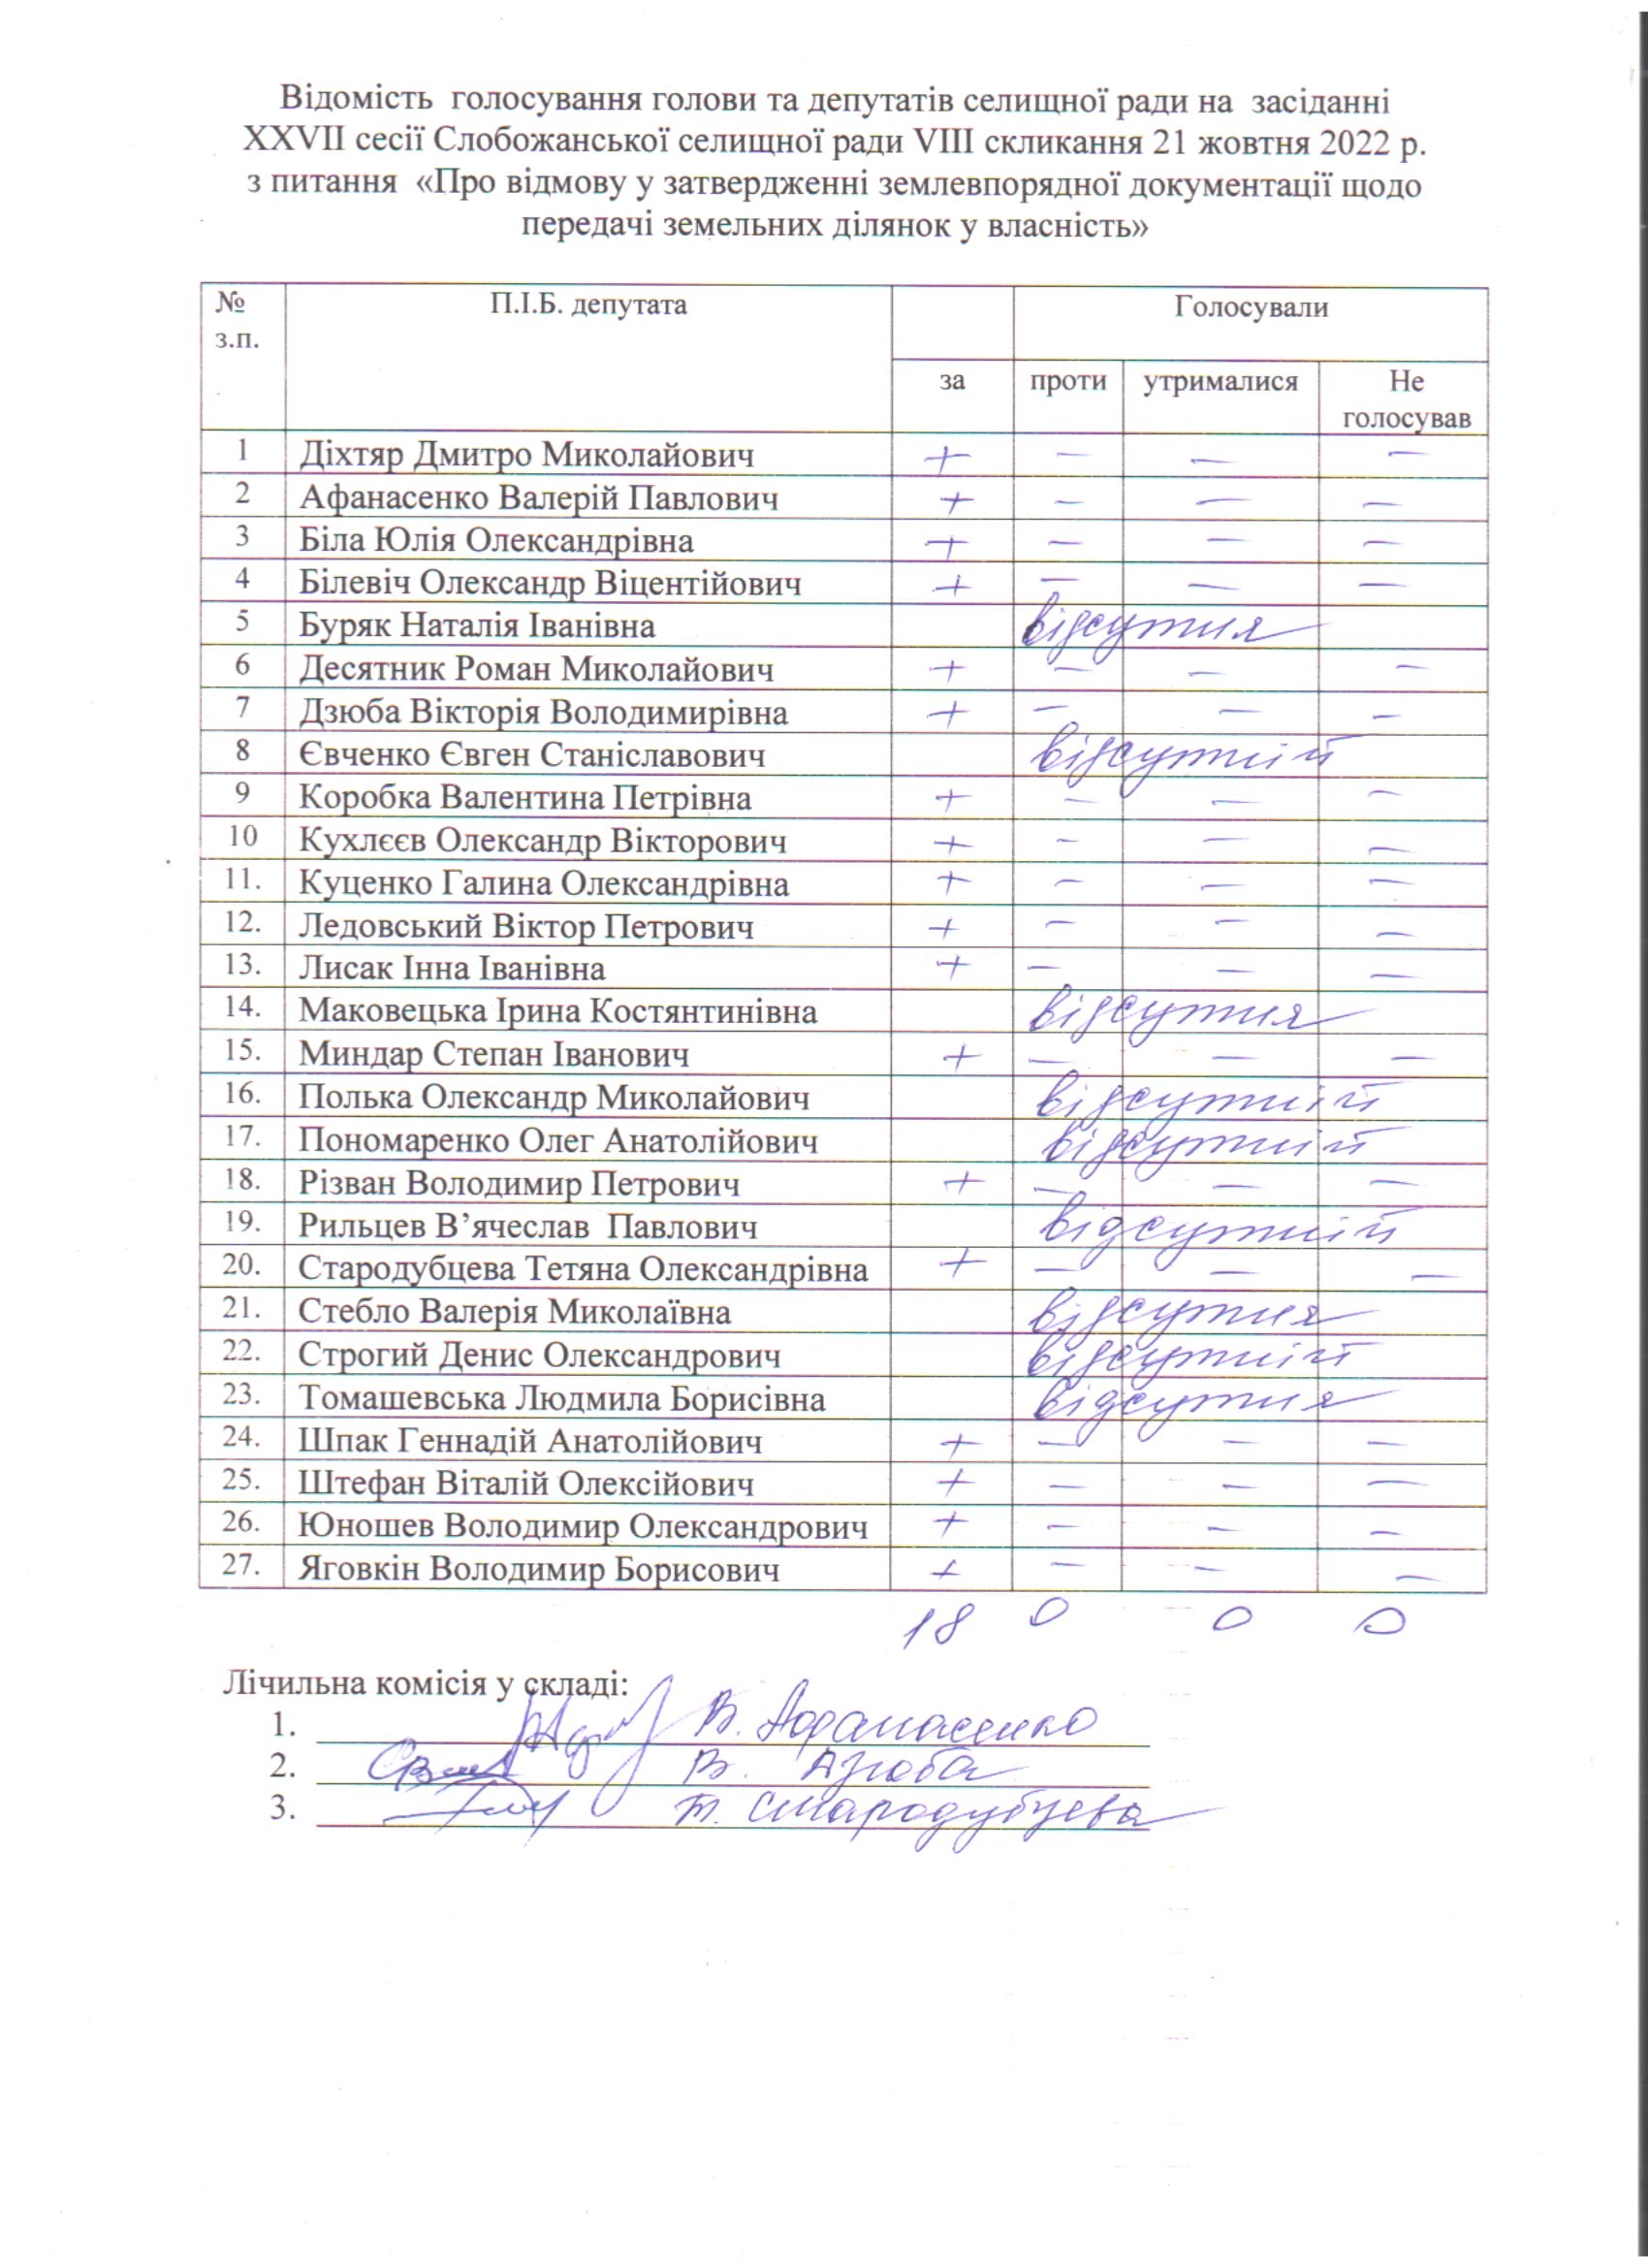 Відомість голосування голови та депутатів селищної ради на засіданні
XXVII сесії Слобожанської селищної ради VIII скликання 21 жовтня 2022 р.
з питання «Про відмову у затвердженні землевпорядної документації щодо
передачі земельних ділянок у власність»
№ з.п. П.І.Б. депутата Голосували
за проти утрималися Не голосував
1 Діхтяр Дмитро Миколайович + – – –
2 Афанасенко Валерій Павлович + – – –
3 Біла Юлія Олександрівна + – – –
4 Білевіч Олександр Віцентійович + – – –
5 Буряк Наталія Іванівна відсутня
6 Десятник Роман Миколайович + – – –
7 Дзюба Вікторія Володимирівна + – – –
8 Євченко Євген Станіславович відсутній
9 Коробка Валентина Петрівна + – – –
10 Кухлєєв Олександр Вікторович + – – –
11. Куценко Галина Олександрівна + – – –
12. Ледовський Віктор Петрович + – – –
13. Лисак Інна Іванівна + – – –
14. Маковецька Ірина Костянтинівна відсутня
15. Миндар Степан Іванович + – – –
16. Полька Олександр Миколайович відсутній
17. Пономаренко Олег Анатолійович відсутній
18. Різван Володимир Петрович + – – –
19. Рильцев В’ячеслав Павлович відсутній
20. Стародубцева Тетяна Олександрівна + – – –
21. Стебло Валерія Миколаївна відсутня
22. Строгий Денис Олександрович відсутній
23. Томашевська Людмила Борисівна відсутня
24. Шпак Геннадій Анатолійович + – – –
25. Штефан Віталій Олексійович + – – –
26. Юношев Володимир Олександрович + – – –
27. Яговкін Володимир Борисович + – – –
18 0 0 0
Лічильна комісія у складі:
1. В. Афанасенко
2. В. Дзюба
3. Т. Стародубцева